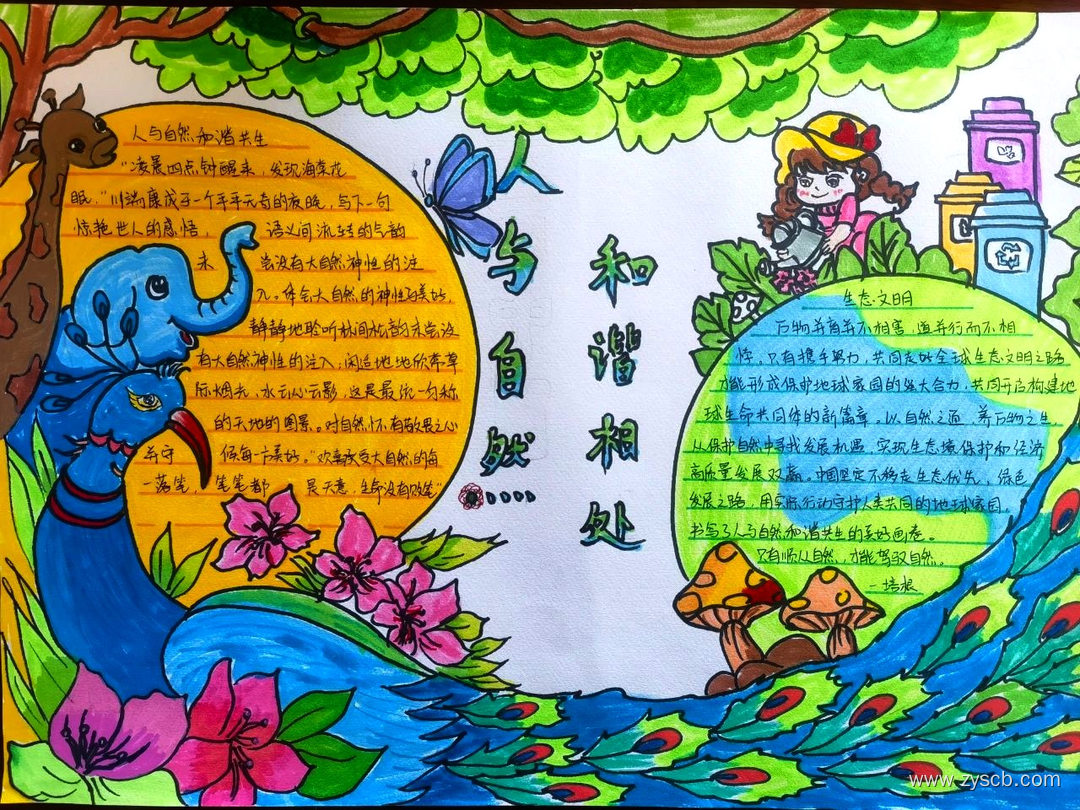 人与自然和谐共生
"凌晨四点钟醒来，发现海棠花
眠，"川端康成于一个平平无奇的夜晚，写下一句
惊艳世人的感悟， 语义间流转的气韵
未 尝没有大自然神性的注
入。体会大自然的神性与美好，
静静地聆听林间松韵未尝没
有大自然神性的注入，闲适地欣常草
际烟光，水云心云影，这是最 一勾称
的天地的图景。对自然怀有敬畏之心
弃守 候每一方美好。"欢喜
一落笔， 笔笔都 是天意，生命没有败笔"
人
与
自
然
和
谐
相
处
生态文明
万物并育并不相害，道并行而不相
悖。只有携手努力，共同走好全球生态文明之路
才能形成保护地球家园的强大合力，共同开启构建地
球生命共同体的新篇章。以自然之道 养万物之生
从保护自然中寻找发展机遇 实现生态境保护和经济
高质量发展双赢。中国坚定不移走生态优先，绿色
发展之路，用实际行动守护人类共同的地球家园
书写了人与自然和谐共生的美好画卷。
只有顺从自然，才能驾驭自然。
—培根
www.zyscb.com